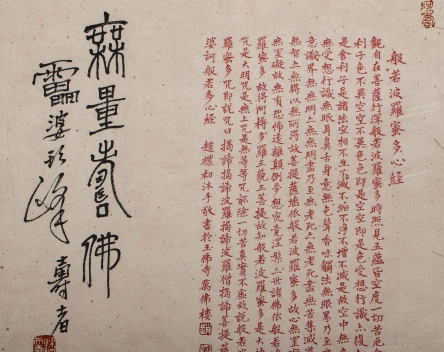 般若波羅蜜多心經
觀自在菩薩行深般若波羅蜜多時照見五蘊皆空度一切苦厄
利子色不異空空不異色色即是空空即是色受想行識亦復
是舍利子是諸法空相不生不滅不垢不淨不增不減是故空中無
無受想行識無眼耳鼻舌身意無色聲香味觸法無眼界乃至
意識界無無明亦無無明盡乃至無老死亦無老死盡無苦集滅
無智亦無得以無所得故菩提薩埵依般若波羅蜜多故心無罣
無罣礙故無有恐怖遠離顛倒夢想究竟涅槃三世諸佛依般若波
羅蜜多故得阿耨多羅三藐三菩提故知般若波羅蜜多是大神
咒是大明咒是無上咒是無等等咒能除一切苦真實不虛故說般若
羅蜜多咒即說咒曰揭諦揭諦波羅揭諦波羅僧揭諦菩提薩
婆訶般若多心經 趙樸初沐手敬書於玉佛寺萬佛樓
無量壽佛
雷婆頂峰壽者